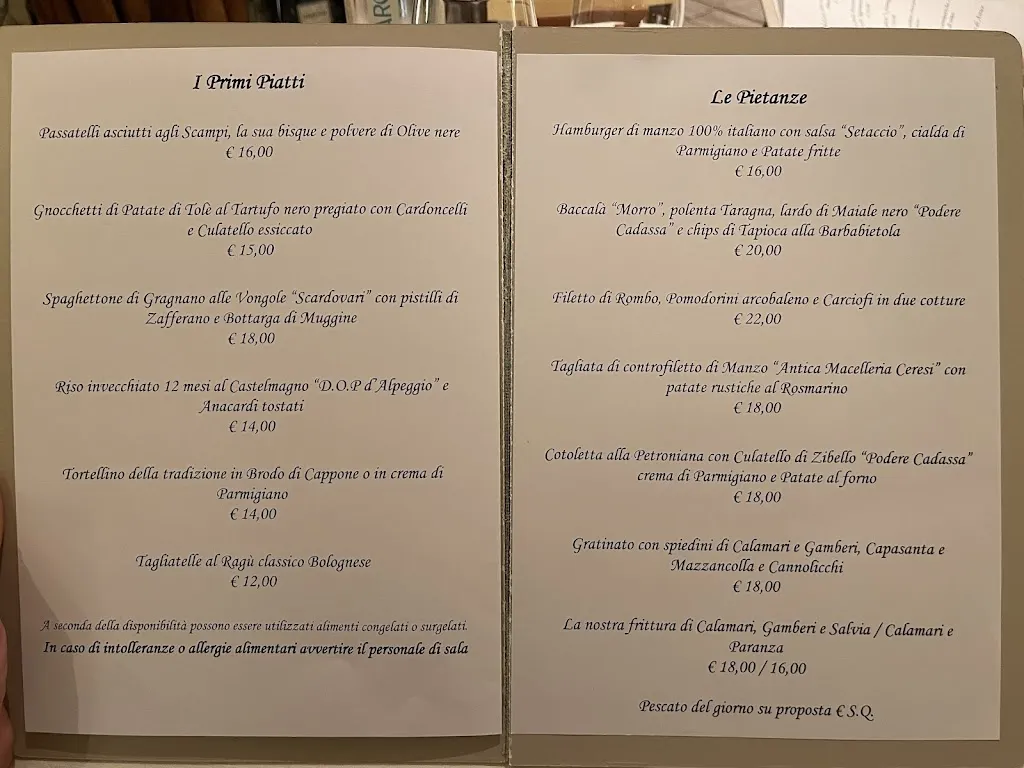 I Primi Piatti
Passatelli asciutti agli Scampi, la sua bisque e polvere di Olive nere
€ 16,00
Gnocchetti di Patate di Tolè al Tartufo nero pregiato con Cardoncelli
e Culatello essiccato
€ 15,00
Spaghettone di Gragnano alle Vongole “Scardovari” con pistilli di
Zafferano e Bottarga di Muggine
€ 18,00
Riso invecchiato 12 mesi al Castelmagno “D.O.P d’Alpeggio” e
Anacardi tostati
€ 14,00
Tortellino della tradizione in Brodo di Cappone o in crema di
Parmigiano
€ 14,00
Tagliatelle al Ragù classico Bolognese
€ 12,00
A seconda della disponibilità possono essere utilizzati alimenti congelati o surgelati.
In caso di intolleranze o allergie alimentari avvertire il personale di sala
Le Pietanze
Hamburger di manzo 100% italiano con salsa “Setaccio”, cialda di
Parmigiano e Patate fritte
€ 16,00
Baccalà “Morro”, polenta Taragna, lardo di Maiale nero “Podere
Cadassa” e chips di Tapioca alla Barbabietola
€ 20,00
Filetto di Rombo, Pomodorini arcobaleno e Carciofi in due cotture
€ 22,00
Tagliata di controfiletto di Manzo “Antica Macelleria Ceresi” con
patate rustiche al Rosmarino
€ 18,00
Cotoletta alla Petroniana con Culatello di Zibello “Podere Cadassa”
crema di Parmigiano e Patate al forno
€ 18,00
Gratinato con spiedini di Calamari e Gamberi, Capasanta e
Mazzancolla e Cannolicchi
€ 18,00
La nostra frittura di Calamari, Gamberi e Salvia / Calamari e
Paranza
€ 18,00 / 16,00
Pescato del giorno su proposta € S.Q.